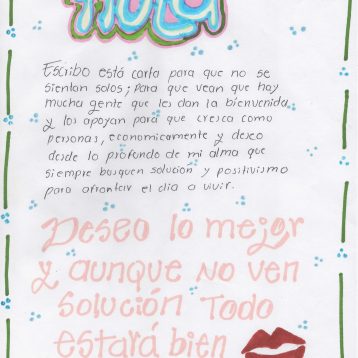 Hola
Escribo está carta para que no se
sientan solos; para que vean que hay
mucha gente que les dan la bienvenida
y los apoyan para que cresca como
personas, economicamente y deseo
desde lo profundo de mi alma que
siempre busquen solución y positivismo
para afrontar el día a vivir.
Deseo lo mejor
y aunque no ven
solución Todo
estará bien